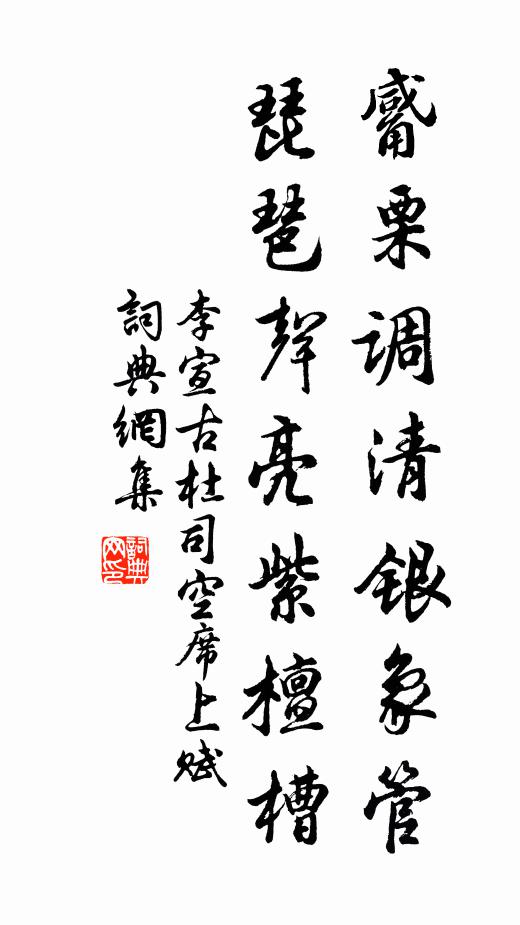 觱栗调清银象管
琵琶聲亮紫檀槽
李宣古杜司空席上赋
詞典網集
詞典网印